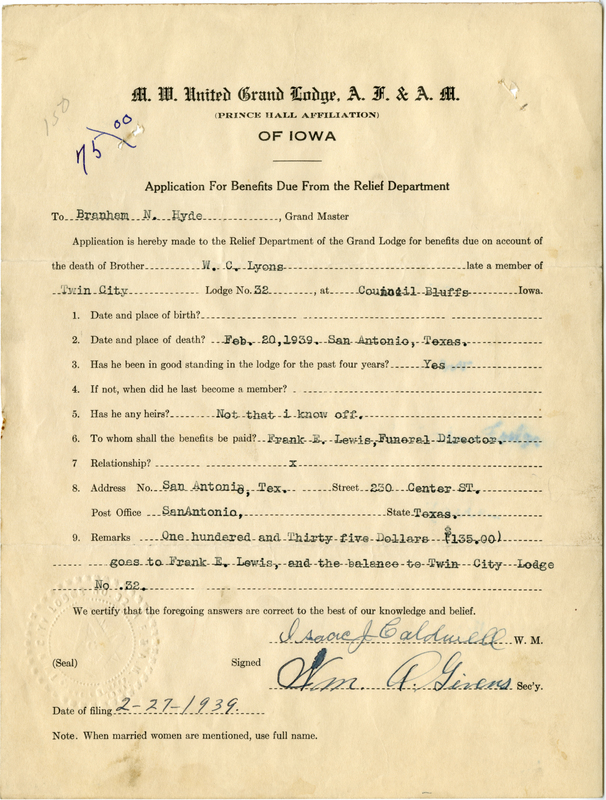 M. W. United Grand Lodge, A. F. & A. M.
(PRINCE HALL AFFILIATION)
OF IOWA
150
75 00
Application For Benefits Due From the Relief Department
To Branham N. Hyde, Grand Master
Application is hereby made to the Relief Department of the Grand Lodge for benefits due on account of
the death of Brother W. C. Lyons late a member of
Twin City Lodge No. 32, at Council Bluffs Iowa.
1. Date and place of birth?
2. Date and place of death? Feb. 20,1939. San Antonio, Texas.
3. Has he been in good standing in the lodge for the past four years? Yes
4. If not, when did he last become a member?
5. Has he any heirs? Not that i know off.
6. To whom shall the benefits be paid? Frank E. Lewis,Funeral Director.
7 Relationship? x
8. Address No. San Antonio, Tex. Street 230 Center ST.
Post Office SanAntonio, State Texas.
9. Remarks One hundred and Thirty five Dollars ($135.00)
goes to Frank E. Lewis, and the balance to Twin City Lodge
No .32.
We certify that the foregoing answers are correct to the best of our knowledge and belief.
Isaac J Caldwell W. M.
(Seal) Signed
Wm. A. Givens Sec'y.
Date of filing 2-27-1939.
Note. When married women are mentioned, use full name.